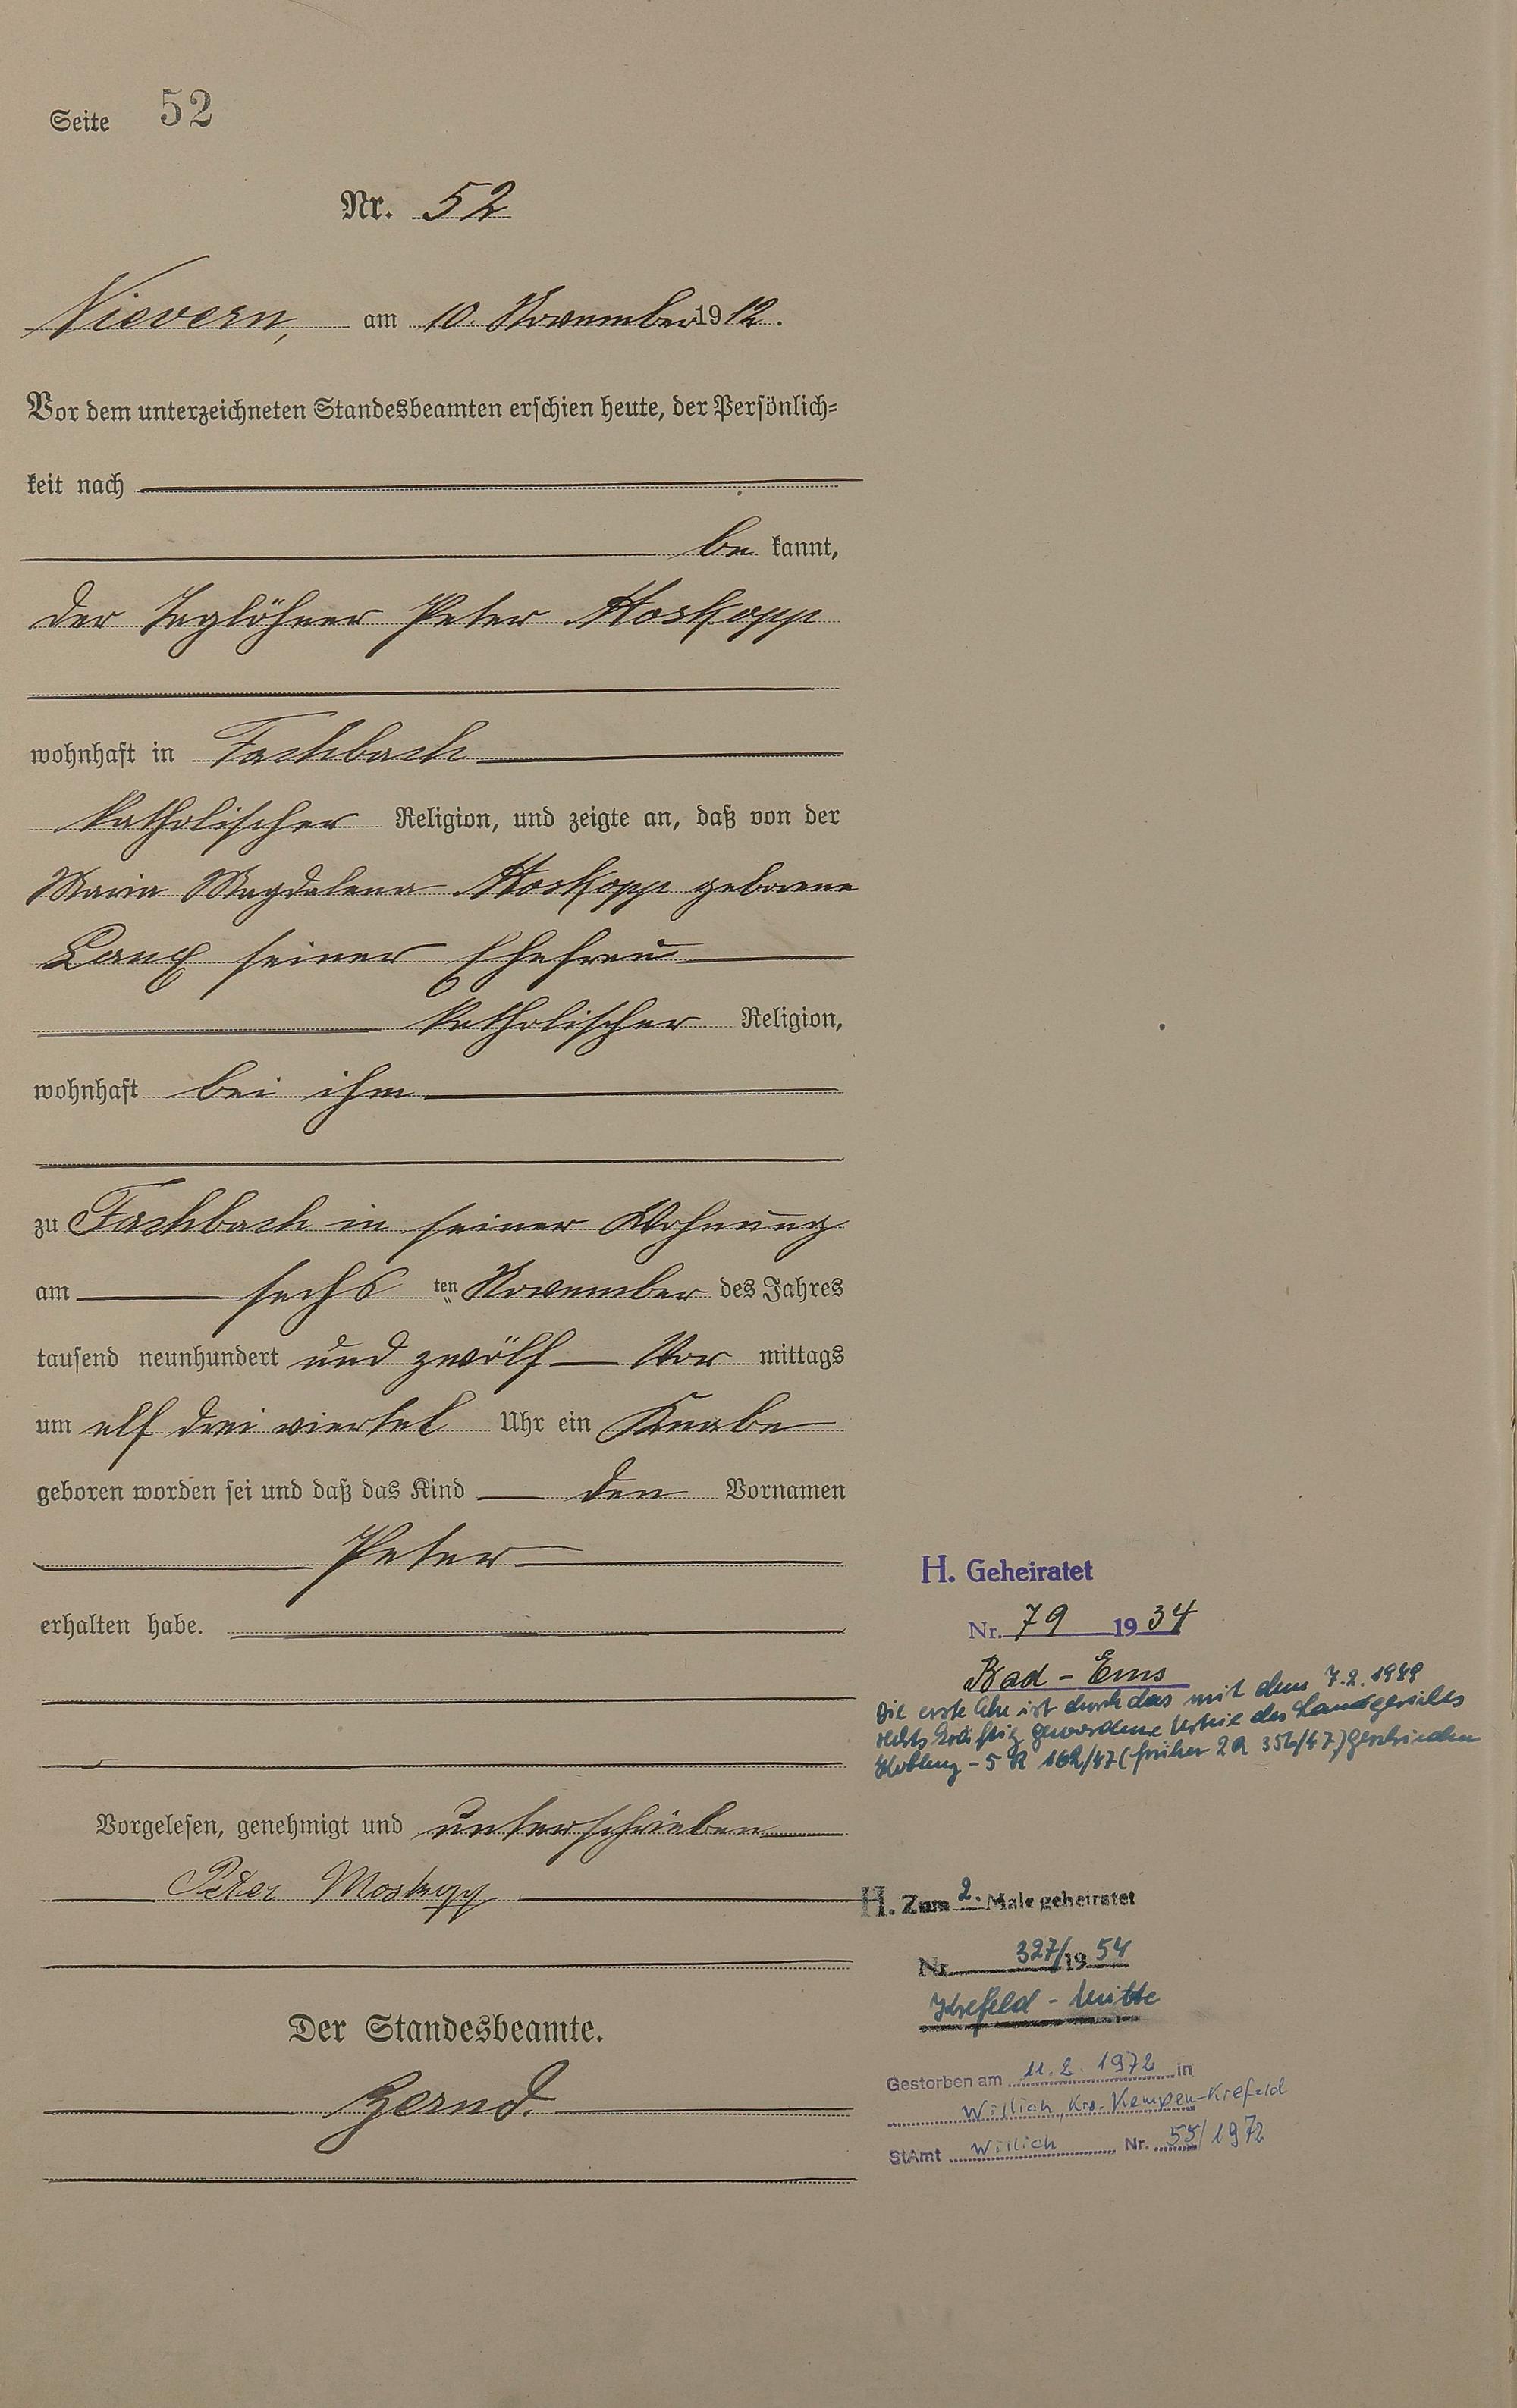 Seite 52
Nr. 52
Nievern, am 10. November 1912.
Vor dem unterzeichneten Standesbeamten erschien heute, der Persönlich-
keit nach
be kannt,
der Taglöhner Peter Moskopp
wohnhaft in Fachbach
katholischer Religion, und zeigte an, daß von der
Maria Magdalena Moskopp geborene
seiner Ehefrau
katholischer Religion,
wohnhaft bei ihm
zu Fachbach in seiner Wohnung
am sechs ten November des Jahres
tausend neunhundert und zwölf Vor mittags
um elf drei viertel Uhr ein Knabe
geboren worden sei und daß das Kind den Vornamen
Peter
erhalten habe.
Vorgelesen, genehmigt und unterschrieben
Peter Moskopp
Der Standesbeamte.
H. Geheiratet
Nr. 79 1934
Bad-Ems
Die erste Ehe ist durch das mit dem 7.2.1949
rechtskräftig gewordene Urteil des Landgerichts
Koblenz - 5 R 162/47 (früher 2 R 356/47) geschieden
H. Zum 2. Male geheiratet
Nr. 327/1954
Krefeld - Mitte
Gestorben am 11.2.1972 in
Willich, Krs. Kempen-Krefeld
StAmt Willich Nr. 55/1972